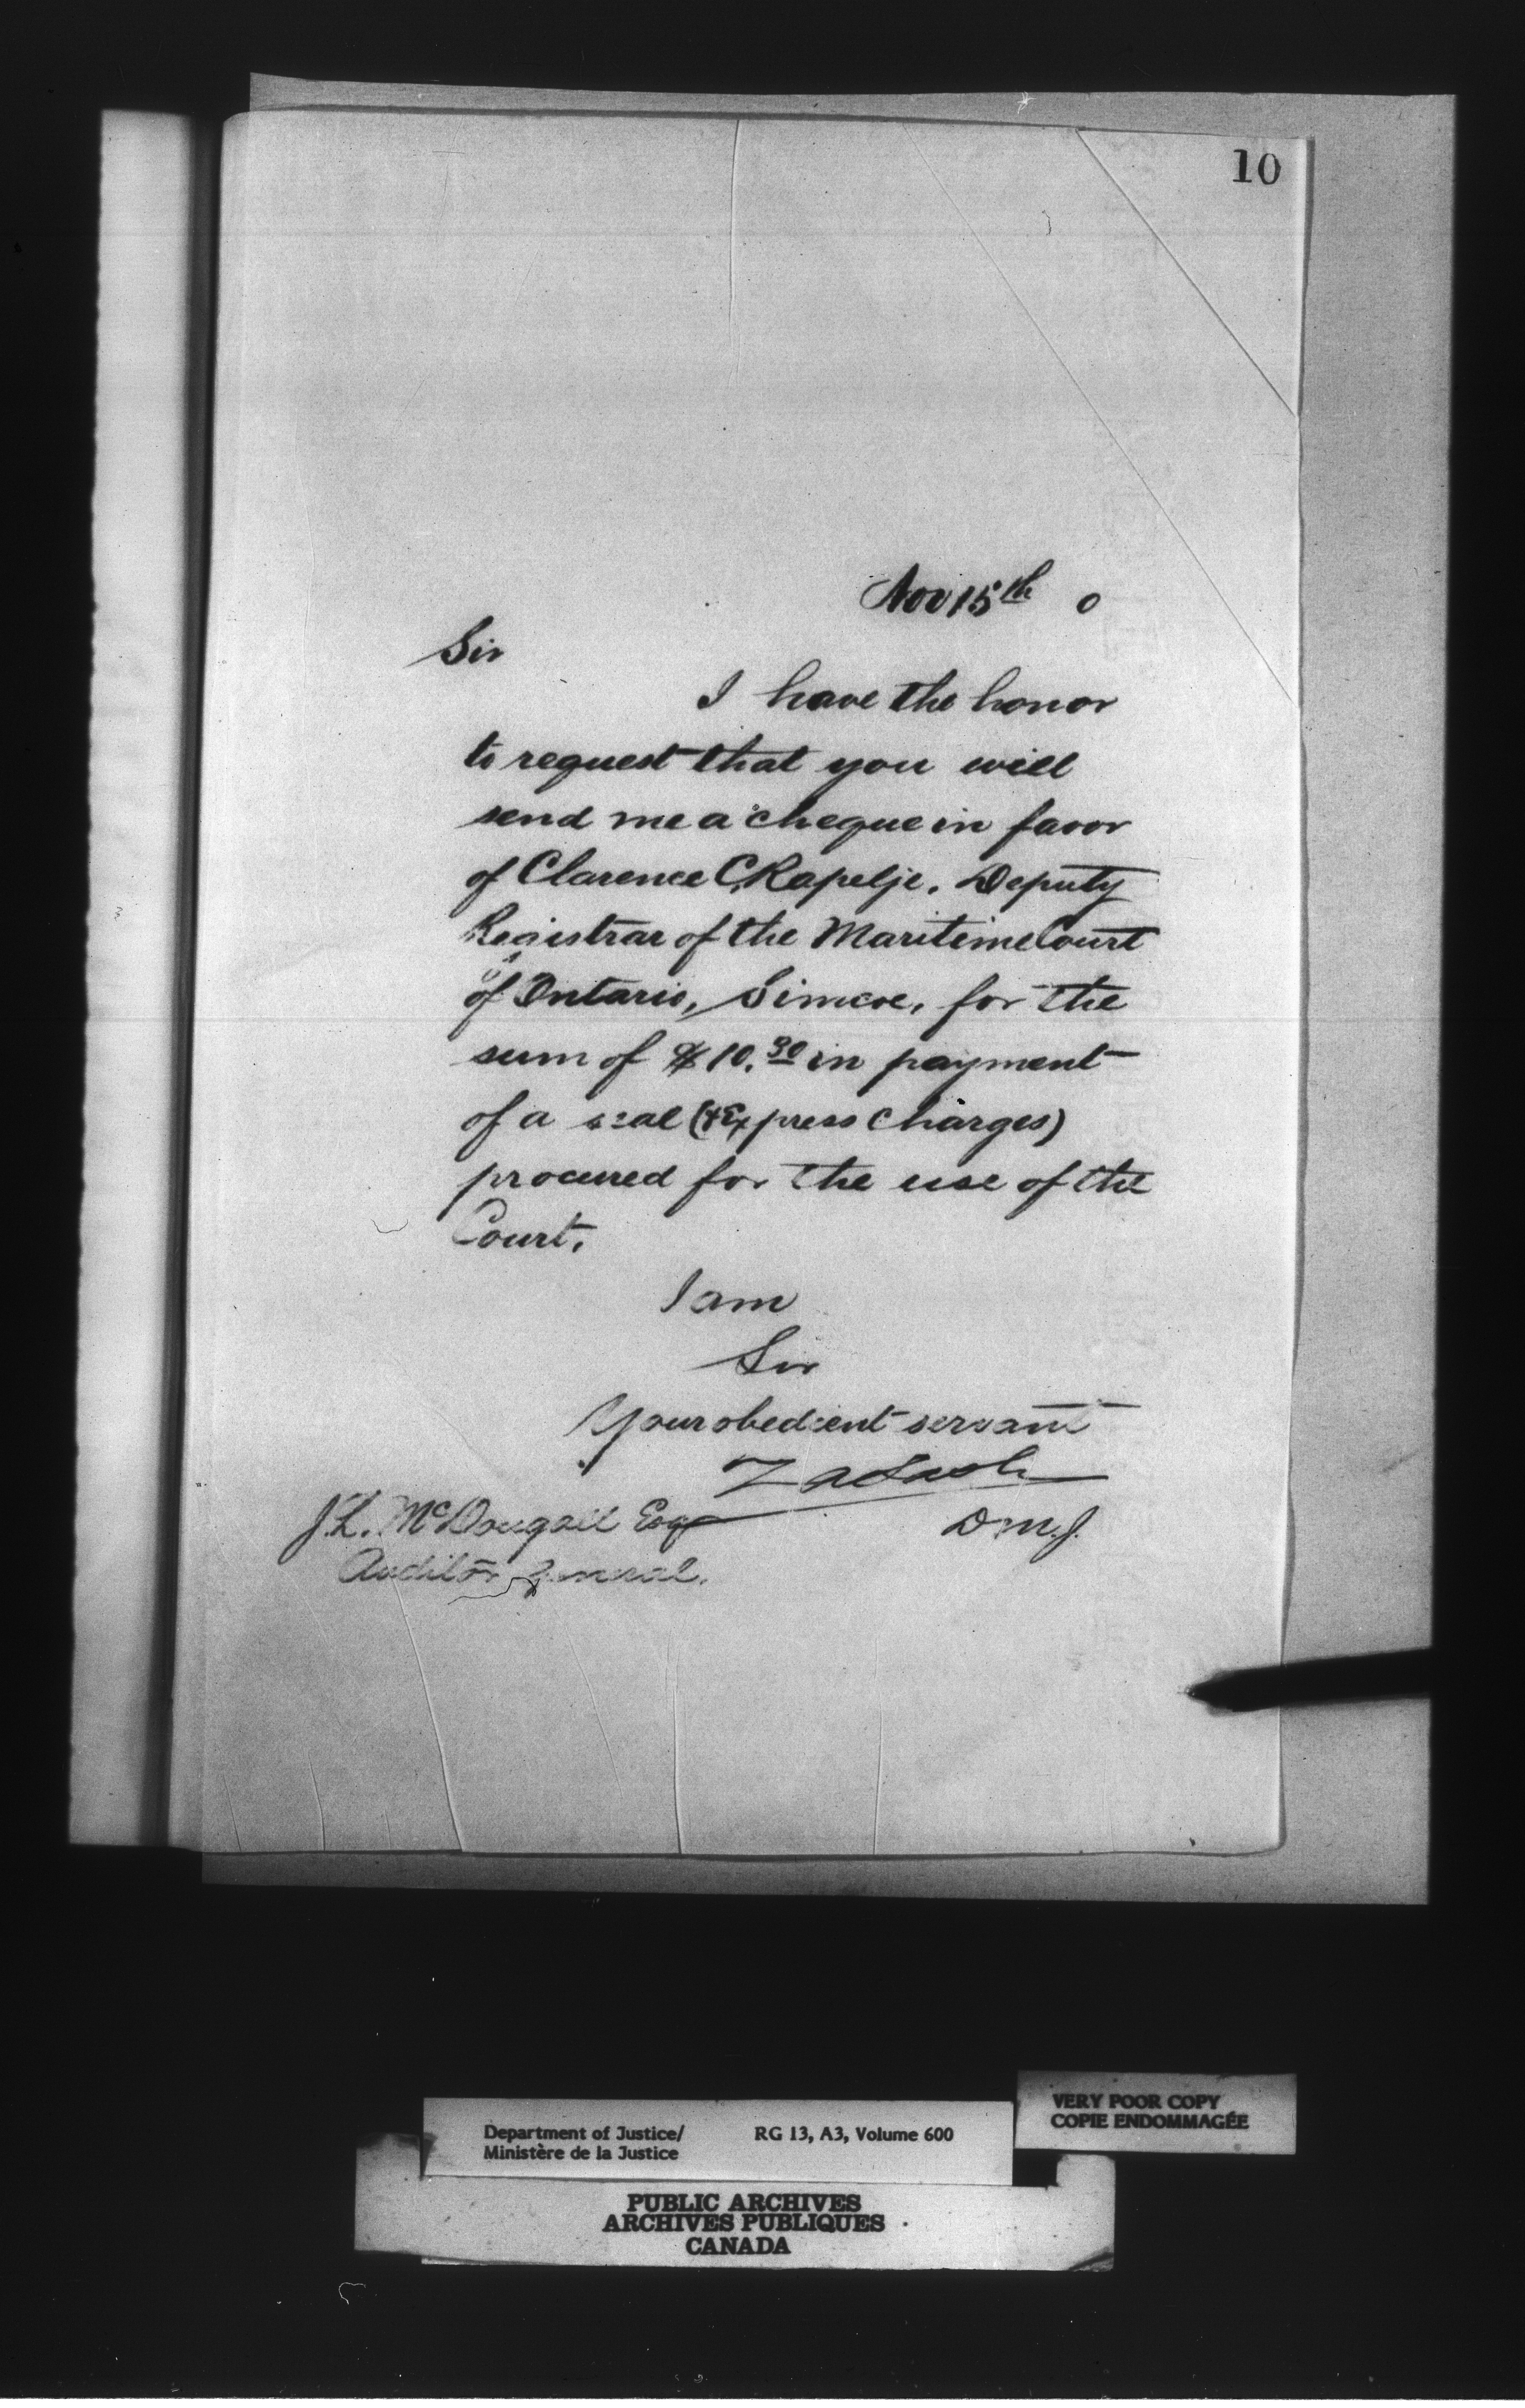 10
Nov 15th 0
Sir
I have the honor
to request that you will
send me a cheque in favor
of Clarence C. Rapelje, Deputy
Registrar of the Maritime Court
of Ontario, Simcoe, for the
sum of $10.30 in payment
of a seal (& Express Charges)
procured for the use of the
Court.
I am
Sir
Your obedient servant
Z A Lash
D M. J.
J. L. McDougall Esq
Auditor General.
VERY POOR COPY
COPIE ENDOMMAGÉE
Department of Justice/ RG 13, A3, Volume 600
Ministère de la Justice
PUBLIC ARCHIVES
ARCHIVES PUBLIQUES
CANADA